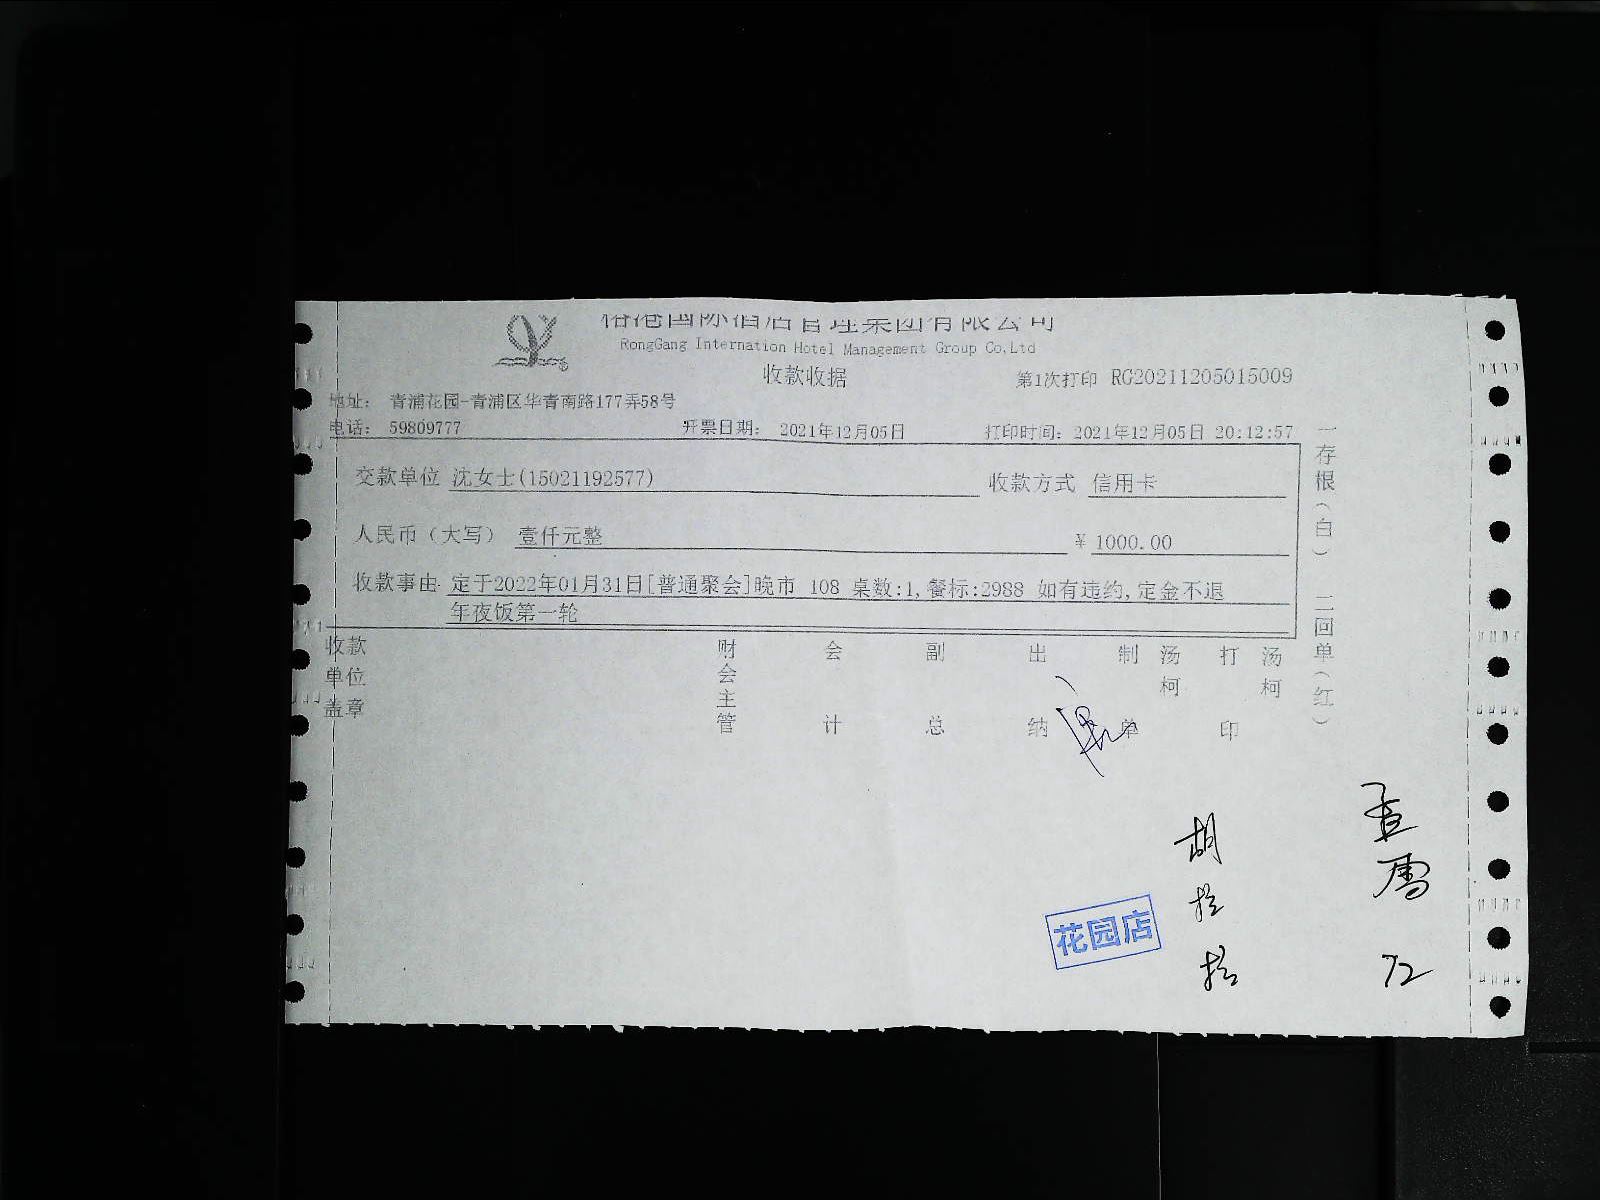 榕港国际酒店管理集团有限公司
RongGang Internation Hotel Management Group Co,Ltd
收款收据
第1次打印 RG20211205015009
地址: 青浦花园-青浦区华青南路177弄58号
电话: 59809777 开票日期: 2021年12月05日 打印时间: 2021年12月05日 20:12:57
交款单位 沈女士(15021192577) 收款方式 信用卡
人民币(大写) 壹仟元整 ¥ 1000.00
收款事由 定于2022年01月31日[普通聚会]晚市 108 桌数:1,餐标:2988 如有违约,定金不退
年夜饭第一轮
收款单位盖章 财会主管 会计 副总 出纳 制单 汤柯 打印 汤柯
一存根(白) 二回单(红)
花园店
胡
72